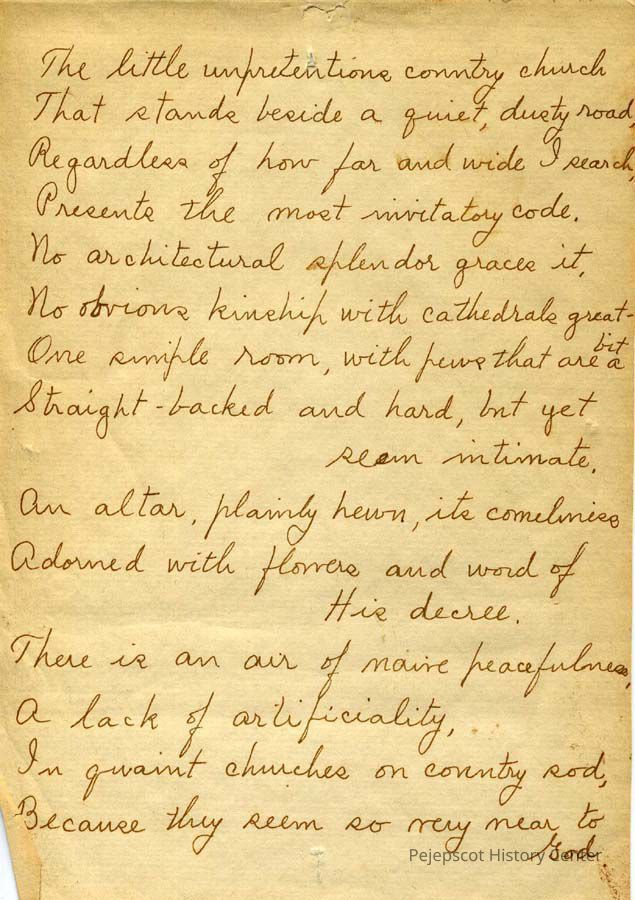 The little unpretentious country church
That stands beside a quiet, dusty road,
Regardless of how far and wide I search,
Presents the most invitatory code.
No architectural splendor graces it,
No obvious kinship with cathedrals great-
One simple room, with pews that are a bit
Straight-backed and hard, but yet
seem intimate.
An altar, plainly hewn, its comeliness
Adorned with flowers and word of
His decree.
There is an air of naive peacefulness,
A lack of artificiality,
In quaint churches on country sod,
Because they seem so very near to
God.
Pejepscot History Center